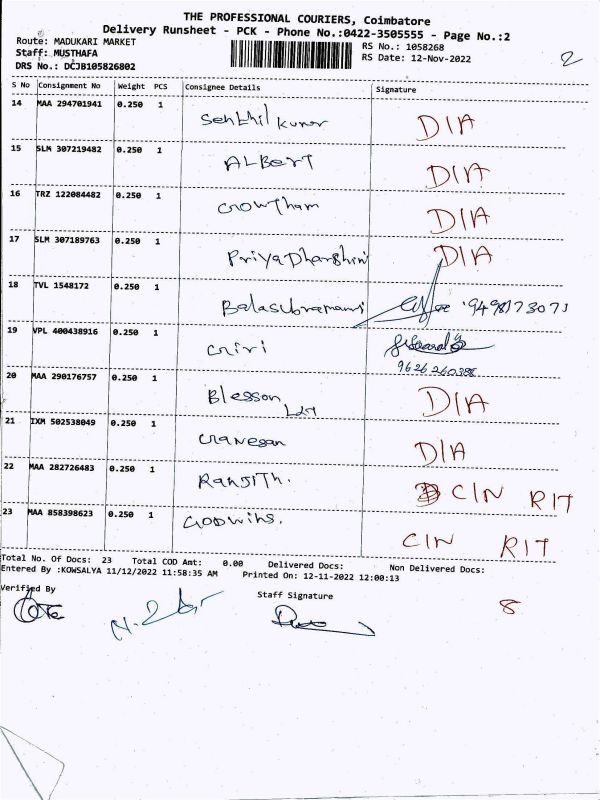 THE PROFESSIONAL COURIERS, Coimbatore
Delivery Runsheet - PCK - Phone No.:0422-3505555 - Page No.:2
Route: MADUKARI MARKET RS No.: 1058268
Staff: MUSTHAFA RS Date: 12-Nov-2022 2
DRS No.: DCJB105826802
S No Consignment No Weight PCS Consignee Details Signature
14 MAA 294701941 0.250 1 Senthil Kumar DIA
15 SLM 307219482 0.250 1 ALBERT DIA
16 TRZ 122084482 0.250 1 Gowtham DIA
17 SLM 307189763 0.250 1 PriyaDharshini DIA
18 TVL 1548172 0.250 1 Balasubramani
19 VPL 400438916 0.250 1 Giri
9626260388
20 MAA 290176757 0.250 1 Blesson DIA
21 IXM 502538049 0.250 1 Ganesan DIA
22 MAA 282726483 0.250 1 Ranjith. CIN RIT
23 MAA 858398623 0.250 1 Godwins. CIN RIT
Total No. Of Docs: 23 Total COD Amt: 0.00 Delivered Docs: Non Delivered Docs:
Entered By :KOWSALYA 11/12/2022 11:58:35 AM Printed On: 12-11-2022 12:00:13
Verified By Staff Signature
8